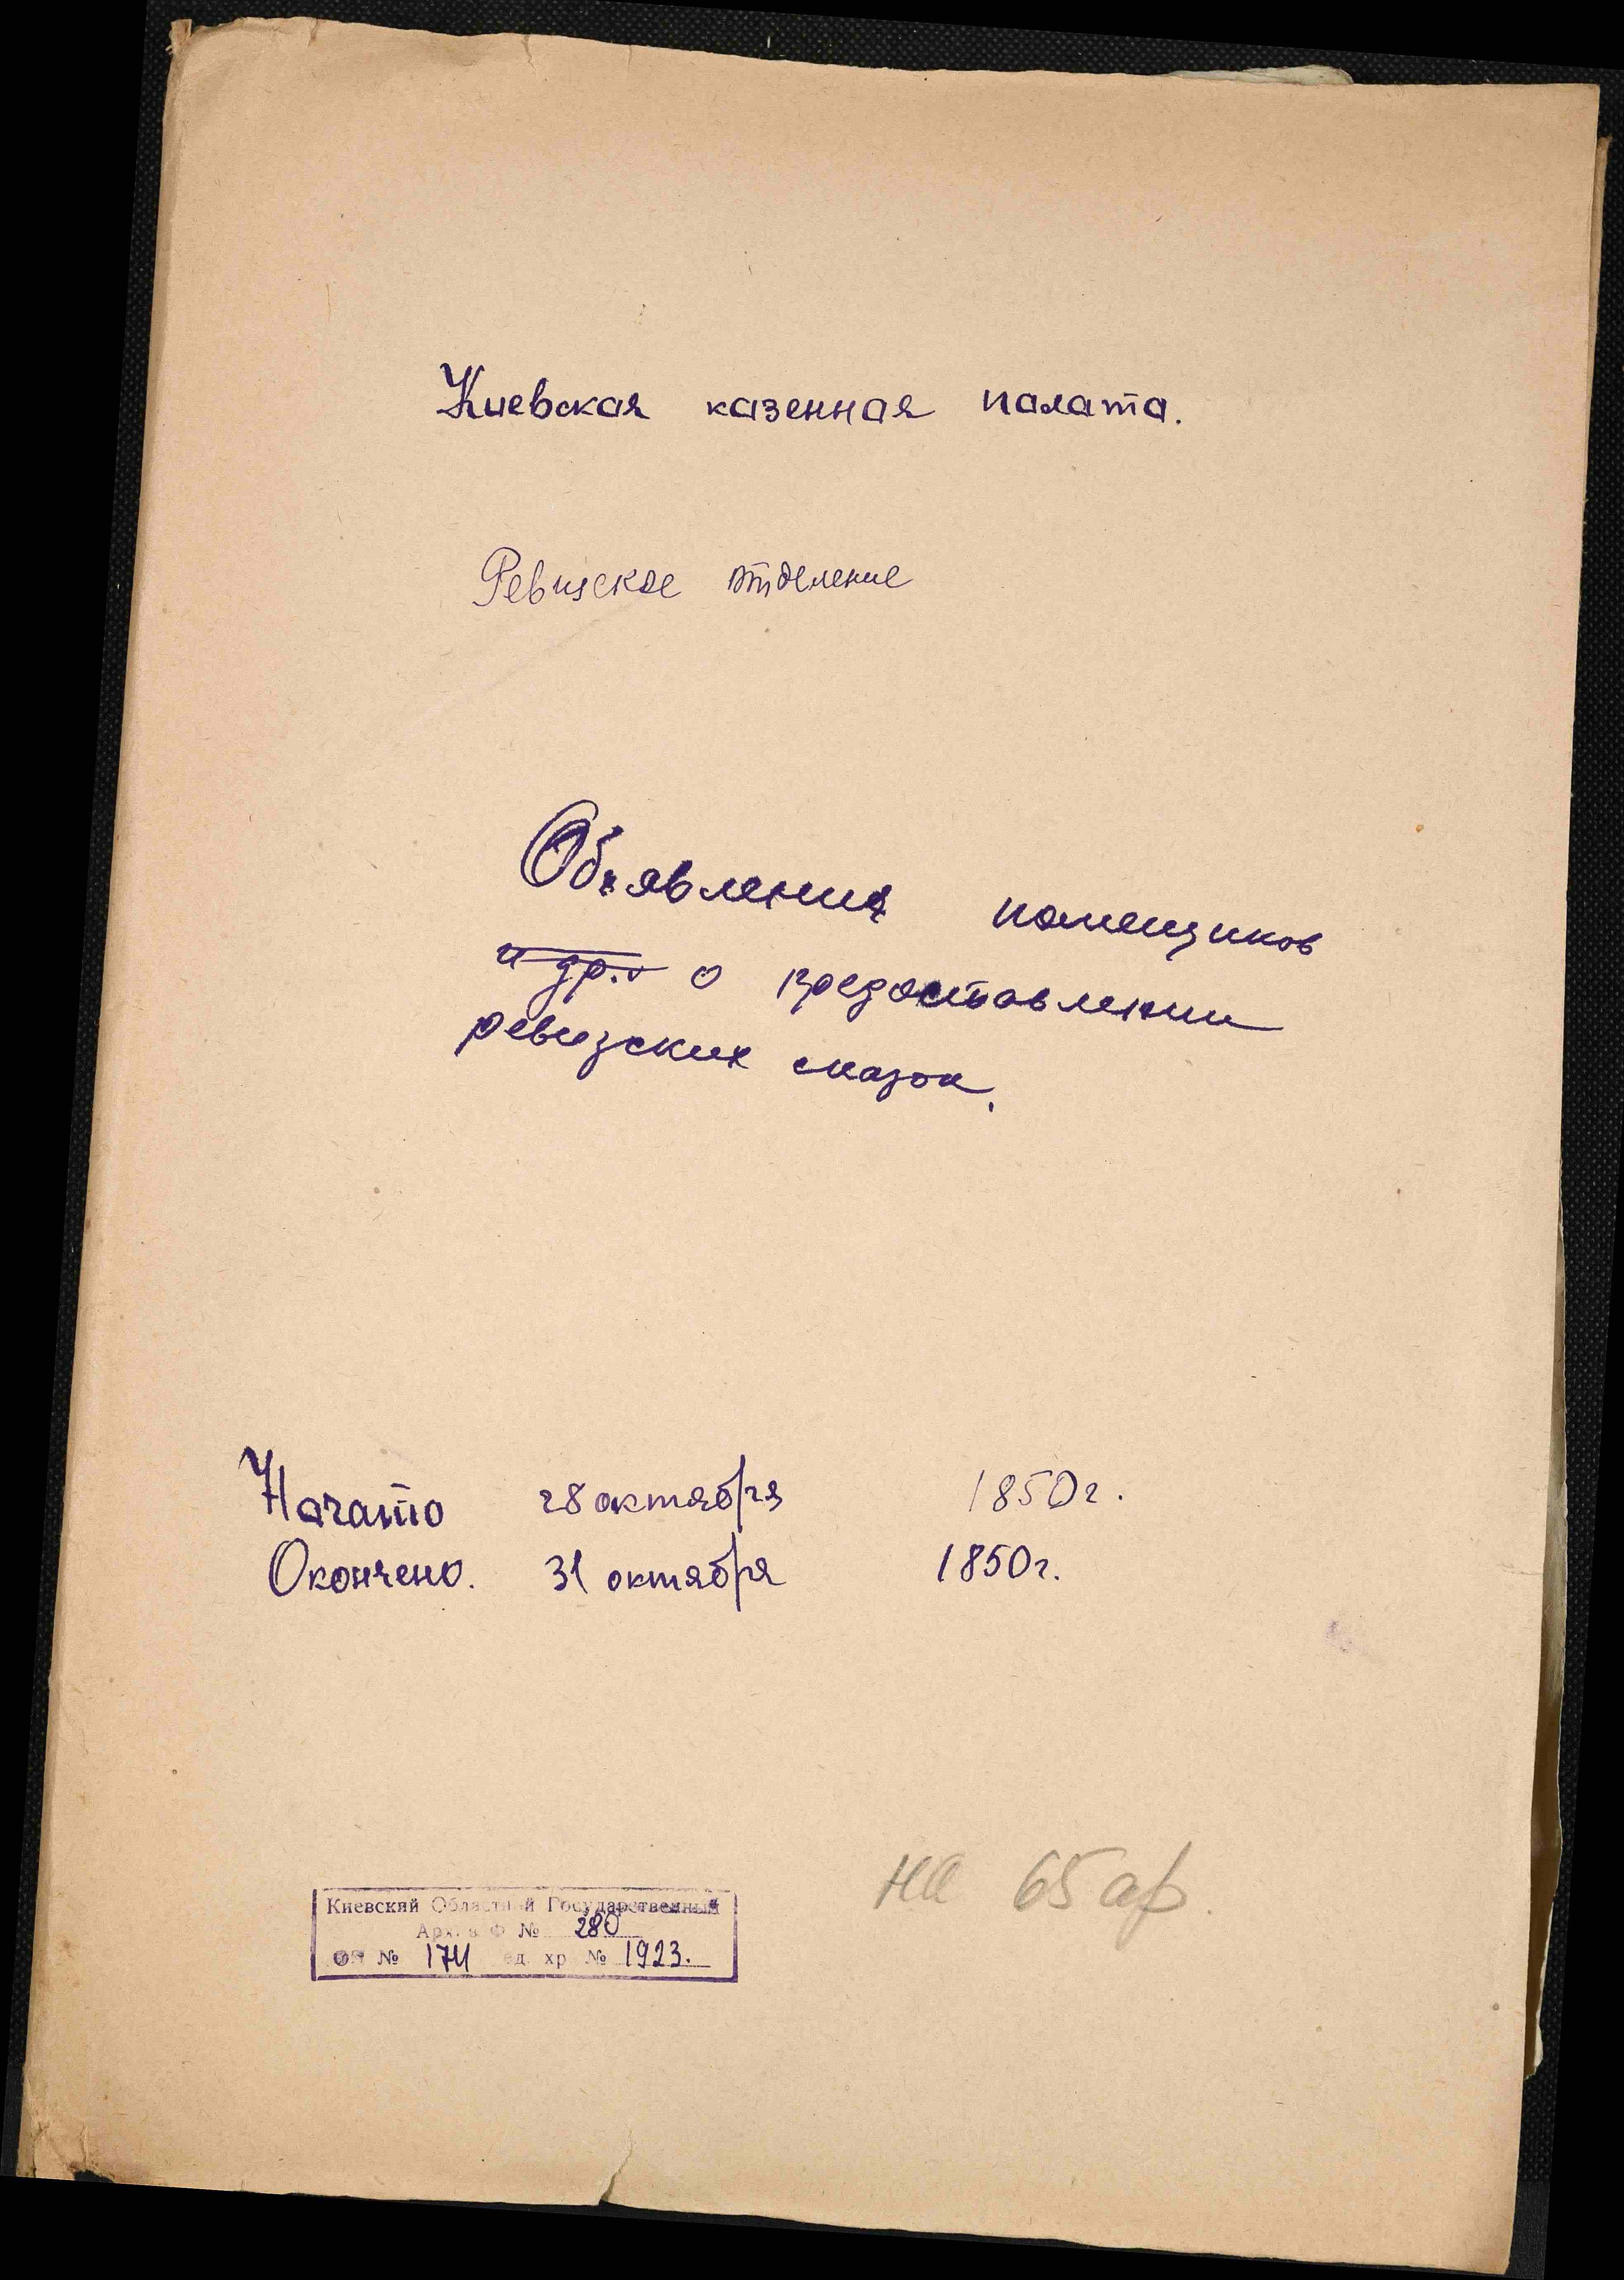 Киевская казенная палата.
Ревизское отделение
Объявления помещиков
и др. о предоставлении
ревизских сказок.
Начато 28 октября 1850г.
Окончено. 31 октября 1850г.
на 65 ар.
Киевский Областной Государственный
Архив Ф № 280
оп № 174 ед. хр № 1923.